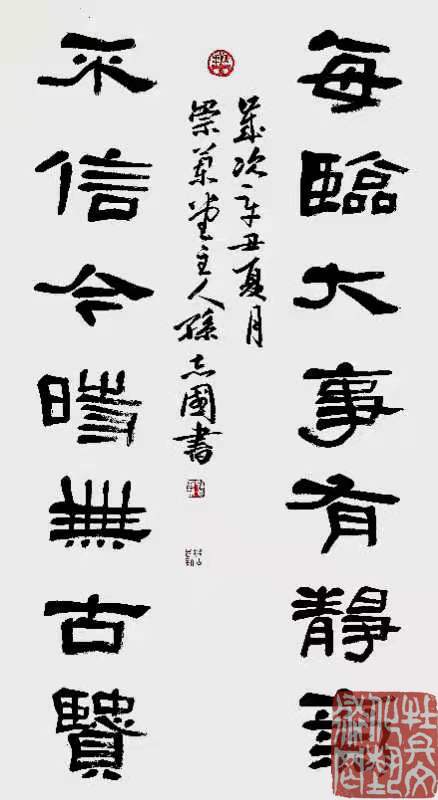 每臨大事有靜氣
歲次辛丑夏月
崇堂主人孫志國書
不信今時無古賢